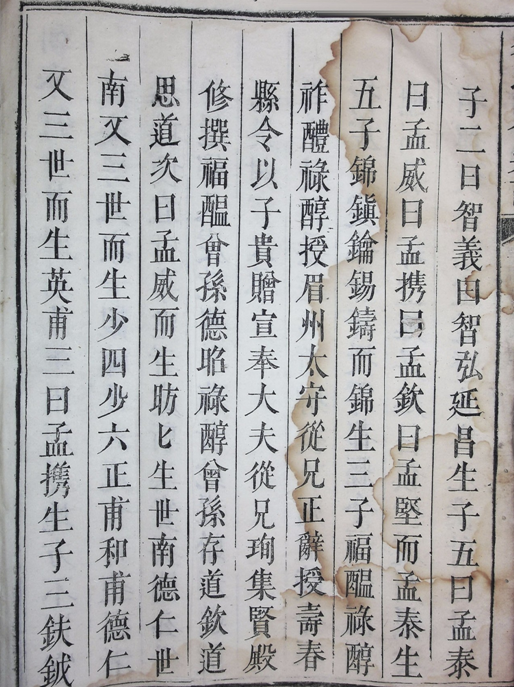 子二曰智義曰智弘延昌生子五曰孟泰
曰孟威曰孟攜曰孟欽曰孟堅而孟泰生
五子錦鎮錀錫鑄而錦生三子福醖祿醇
祚醴祿醇授眉州太守從兄正辭授壽春
縣令以子貴贈宣奉大夫從兄珣集賢殿
修撰福醖曾孫德昭祿醇曾孫存道欽道
思道次曰孟威而生昉匕生世南德仁世
南又三世而生少四少六正甫和甫德仁
又三世而生英甫三曰孟攜生子三鈇鉞